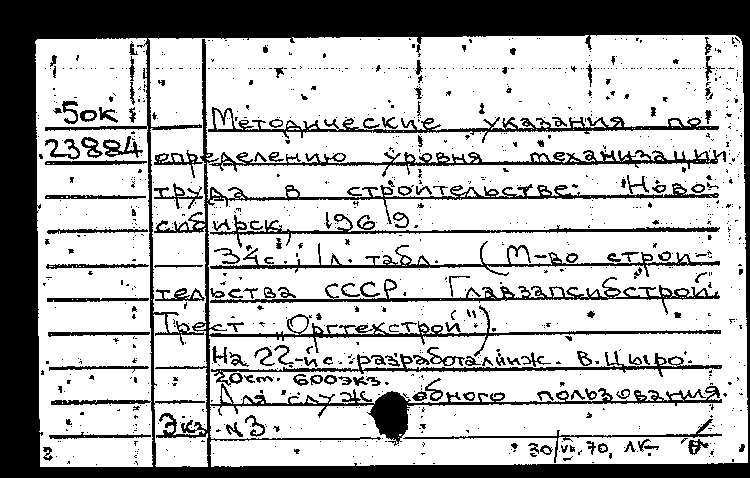 Бок Методические указания по
23884 определению уровня механизации
труда в строительстве. Ново-
сибирск, 1969.
34с.; 1л. табл. (М-во строи-
тельства СССР. Главзапсибстрой.
Трест "Оргтехстрой").
На 22-й с.: разработал инж. В. Цыро.
20см. 600экз.
Для служебного пользования.
Экз. N3
30/VII.70, ЛК-